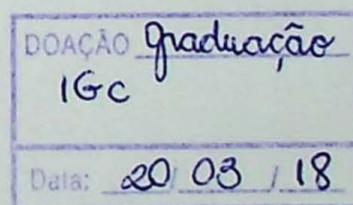 DOAÇÃO Graduação
IGc
Data: 20/03/18